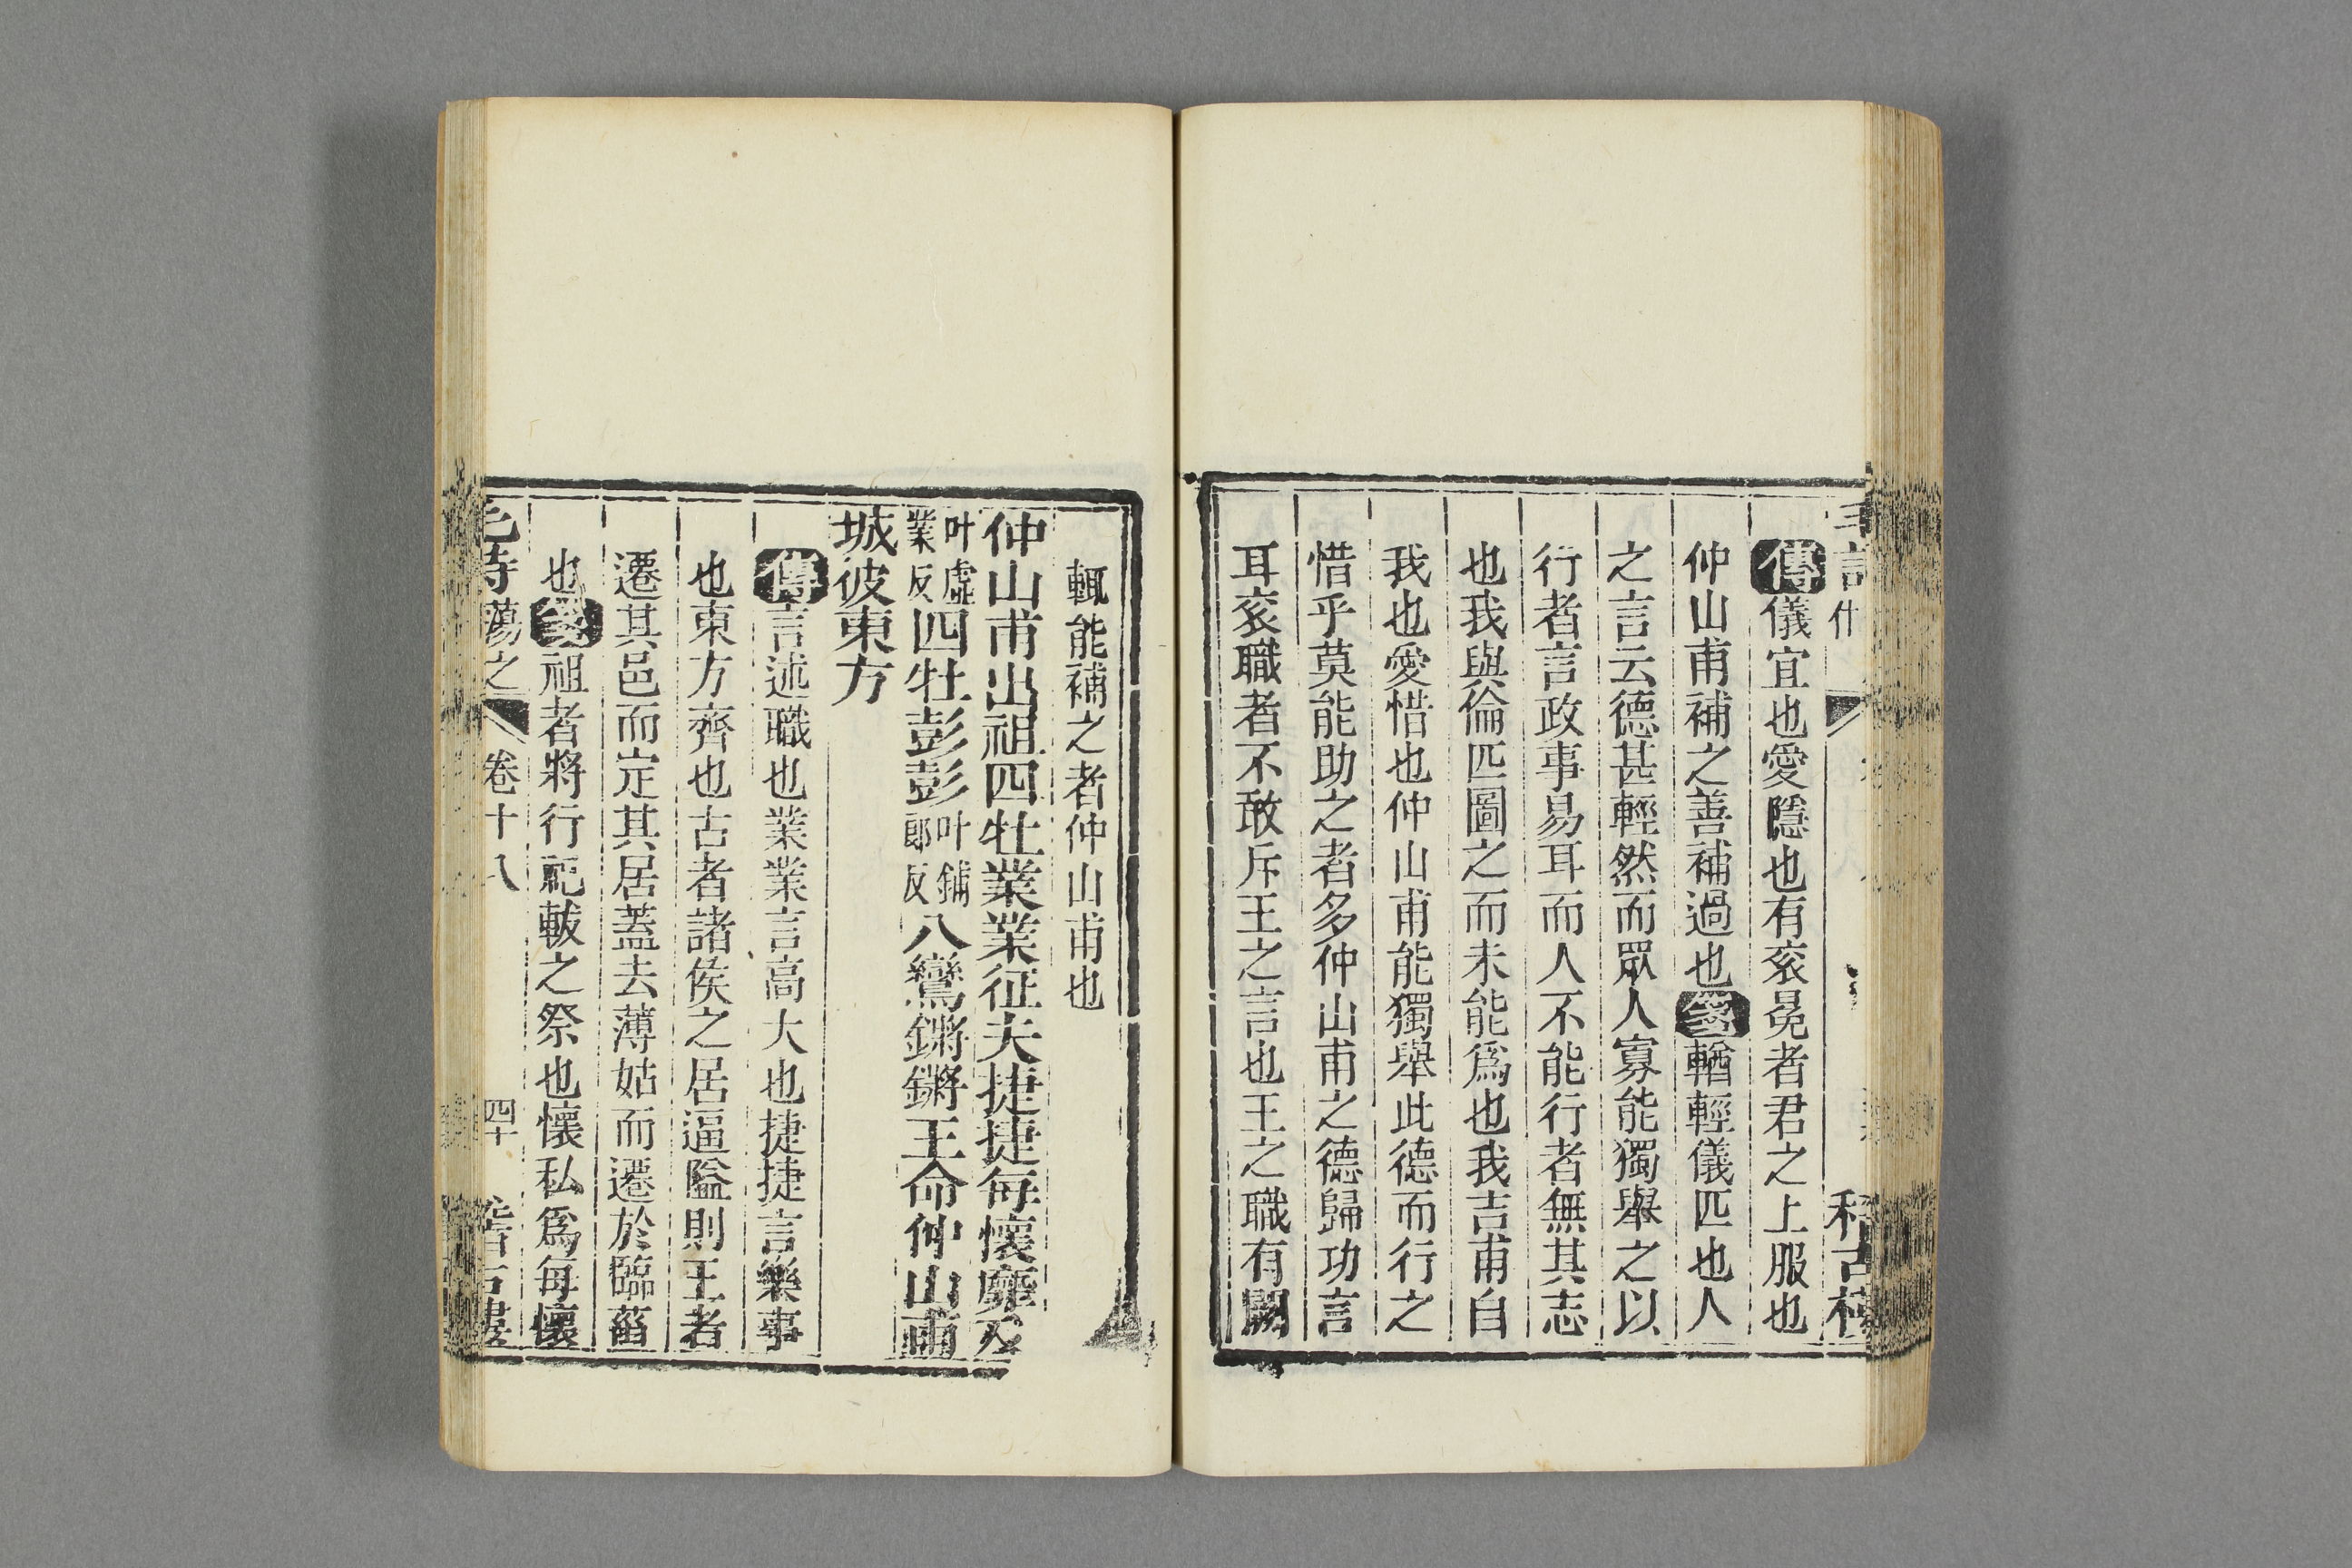 傳儀宜也愛隱也有衮冕者君之上服也
仲山甫補之善補過也箋輶輕儀匹也人
之言云德甚輕然而眾人寡能獨舉之以
行者言政事易耳而人不能行者無其志
也我與倫匹圖之而未能爲也我吉甫自
我也愛惜也仲山甫能獨舉此德而行之
惜乎莫能助之者多仲山甫之德歸功言
耳衮職者不敢斥王之言也王之職有闕
輒能補之者仲山甫也
仲山甫出祖四牡業業征夫捷捷每懷靡及
叶虛業反四牡彭彭叶鋪郎反八鸞鏘鏘王命仲山甫
城彼東方
傳言述職也業業言高大也捷捷言樂事
也東方齊也古者諸侯之居逼隘則王者
遷其邑而定其居蓋去薄姑而遷於臨菑
也箋祖者將行祀軷之祭也懷私爲每懷
毛詩蕩之 卷十八 四十